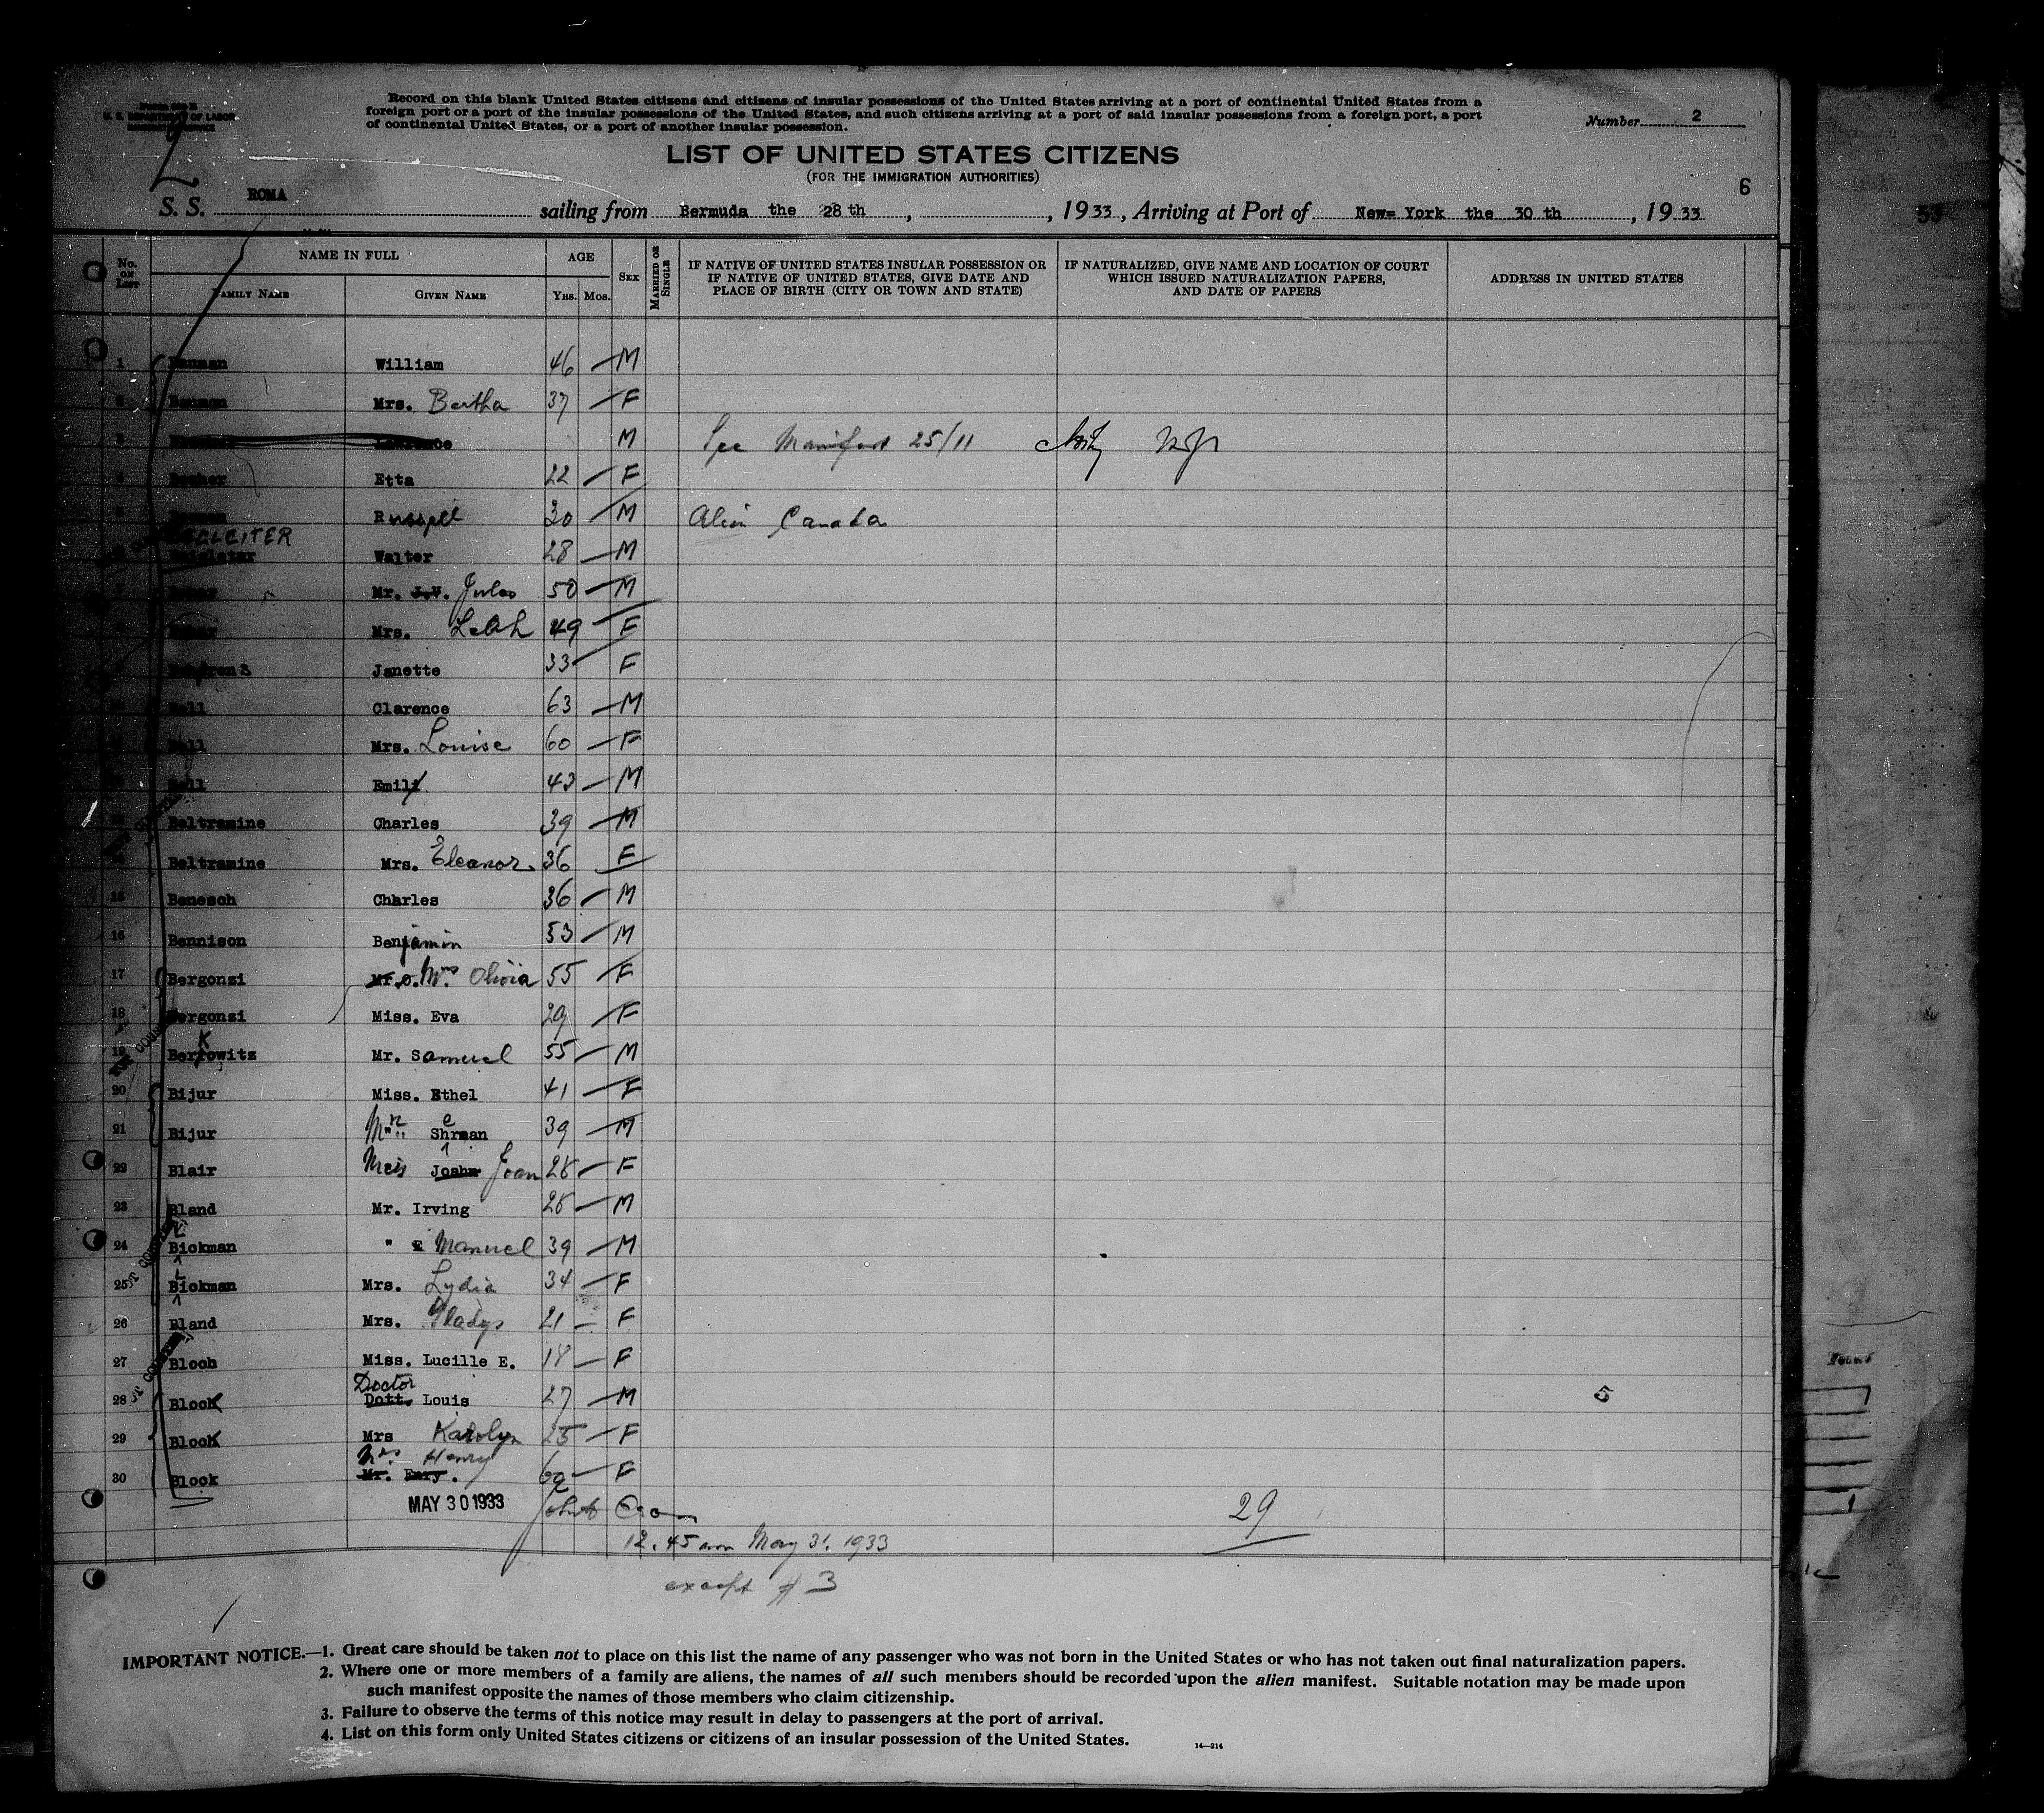 U. S. DEPARTMENT OF LABOR
Record on this blank United States citizens and citizens of insular possessions of the United States arriving at a port of continental United States from a
foreign port or a port of the insular possessions of the United States, and such citizens arriving at a port of said insular possessions from a foreign port, a port
of continental United States, or a port of another insular possession.
Number 2
LIST OF UNITED STATES CITIZENS
(FOR THE IMMIGRATION AUTHORITIES)
6
S. S. ROMA sailing from Bermuda the 28th , , 1933, Arriving at Port of New= York the 30 th , 1933
No. on List NAME IN FULL AGE SEX MARRIED OR SINGLE
FAMILY NAME GIVEN NAME YRS. MOS.
IF NATIVE OF UNITED STATES INSULAR POSSESSION OR
IF NATIVE OF UNITED STATES, GIVE DATE AND
PLACE OF BIRTH (CITY OR TOWN AND STATE)
IF NATURALIZED, GIVE NAME AND LOCATION OF COURT
WHICH ISSUED NATURALIZATION PAPERS,
AND DATE OF PAPERS
ADDRESS IN UNITED STATES
1 William 46 M
Mrs. Bertha 37 F
3 M See Manifest 25/11
Etta 22 F
Russell 30 M Alien Canada
Walter 28 M
Mr. J.V. Jules 50 M
Mrs. Leah 49 F
Janette 33 F
Bell Clarence 63 M
Bell Mrs. Louise 60 F
Bell Emil 43 M
Beltramine Charles 39 M
Beltramine Mrs. Eleanor 36 F
15 Benesch Charles 36 M
16 Bennison Benjamin 53 M
17 Bergonzi Mr. O. Mrs Olivia 55 F
18 Bergonzi Miss. Eva 29 F
19 Berkowitz Mr. Samuel 55 M
20 Bijur Miss. Ethel 41 F
21 Bijur Mr Sherman 39 M
22 Blair Miss Joahn Joan 28 F
23 Bland Mr. Irving 28 M
24 Blickman " E Manuel 39 M
25 Blickman Mrs. Lydia 34 F
26 Bland Mrs. Gladys 21 F
27 Bloch Miss. Lucille E. 18 F
Doctor
28 Block Dott. Louis 27 M 5
29 Block Mrs Karolyn 25 F
Mrs. Henry
30 Block Mr. Enry. 60 F
MAY 30 1933 29
12.45 am May 31, 1933
except # 3
IMPORTANT NOTICE.—1. Great care should be taken not to place on this list the name of any passenger who was not born in the United States or who has not taken out final naturalization papers.
2. Where one or more members of a family are aliens, the names of all such members should be recorded upon the alien manifest. Suitable notation may be made upon
such manifest opposite the names of those members who claim citizenship.
3. Failure to observe the terms of this notice may result in delay to passengers at the port of arrival.
4. List on this form only United States citizens or citizens of an insular possession of the United States.
14—214